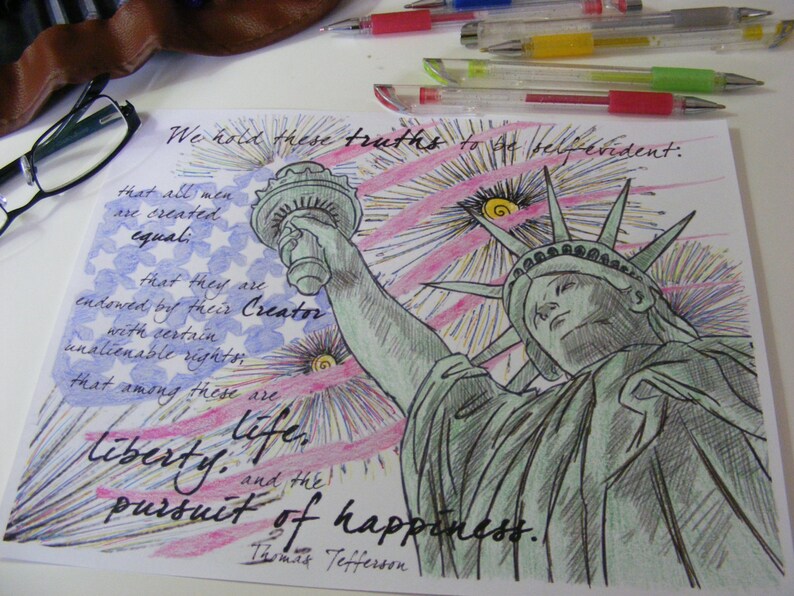 We hold these truths to be self-evident:
that all men
are created
equal;
that they are
endowed by their Creator
with certain
unalienable rights;
that among these are
life,
liberty,
and the
pursuit of happiness.
Thomas Jefferson